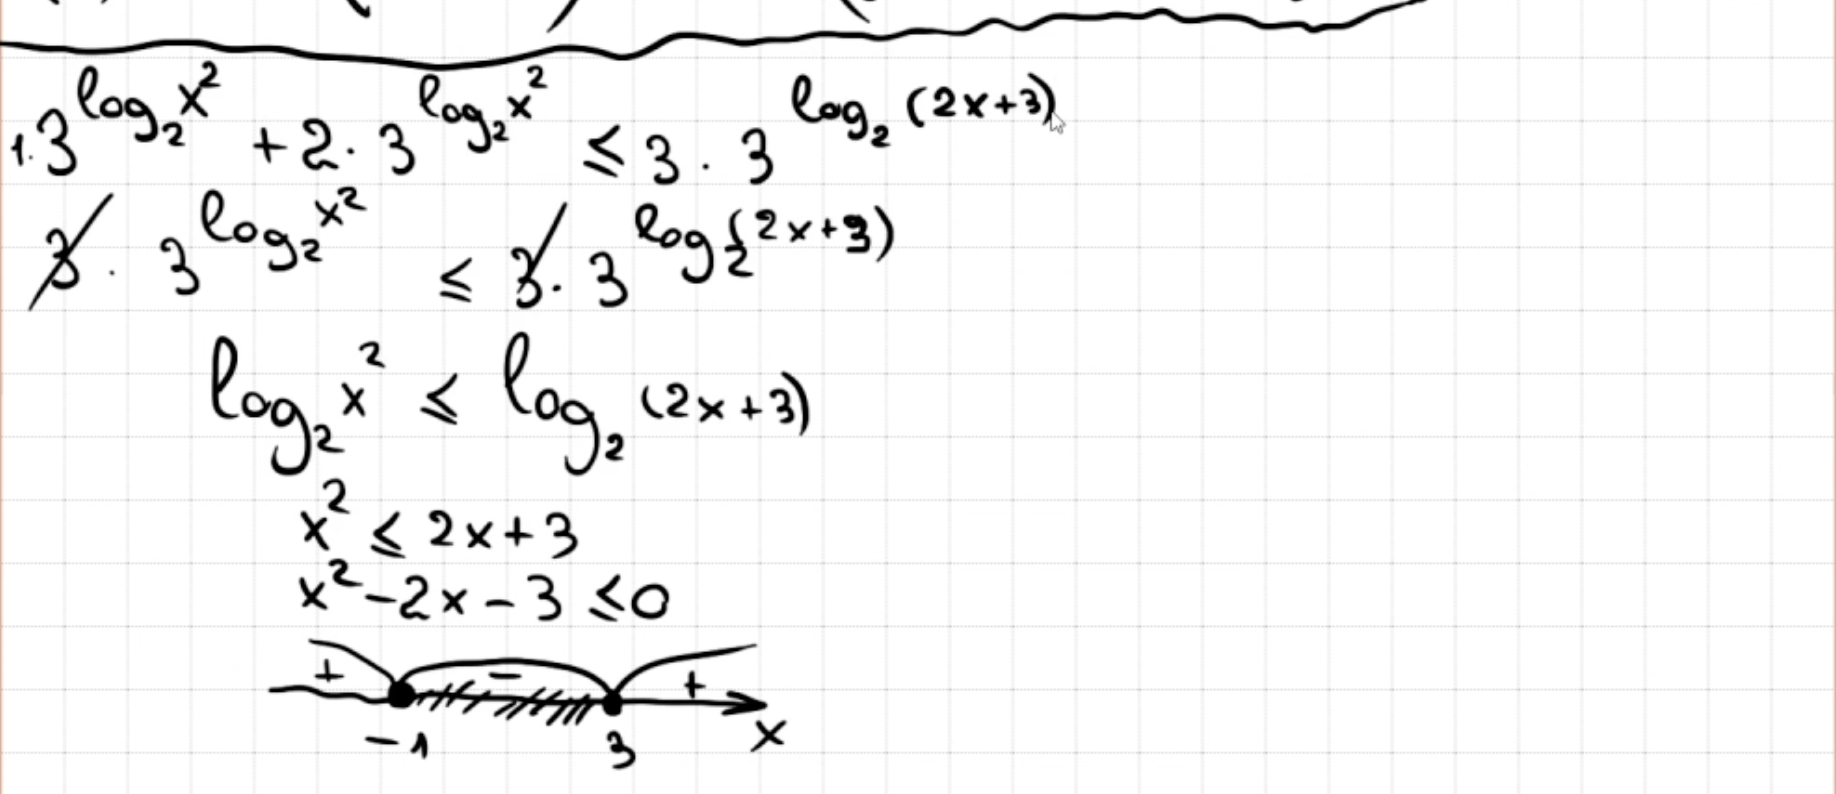 1.3^{log_2 x^2} + 2 · 3^{log_2 x^2} ≤ 3 · 3^{log_2 (2x+3)}
3 · 3^{log_2 x^2} ≤ 3 · 3^{log_2 (2x+3)}
log_2 x^2 ≤ log_2 (2x+3)
x^2 ≤ 2x+3
x^2 - 2x - 3 ≤ 0
+ - +
-1 3 x